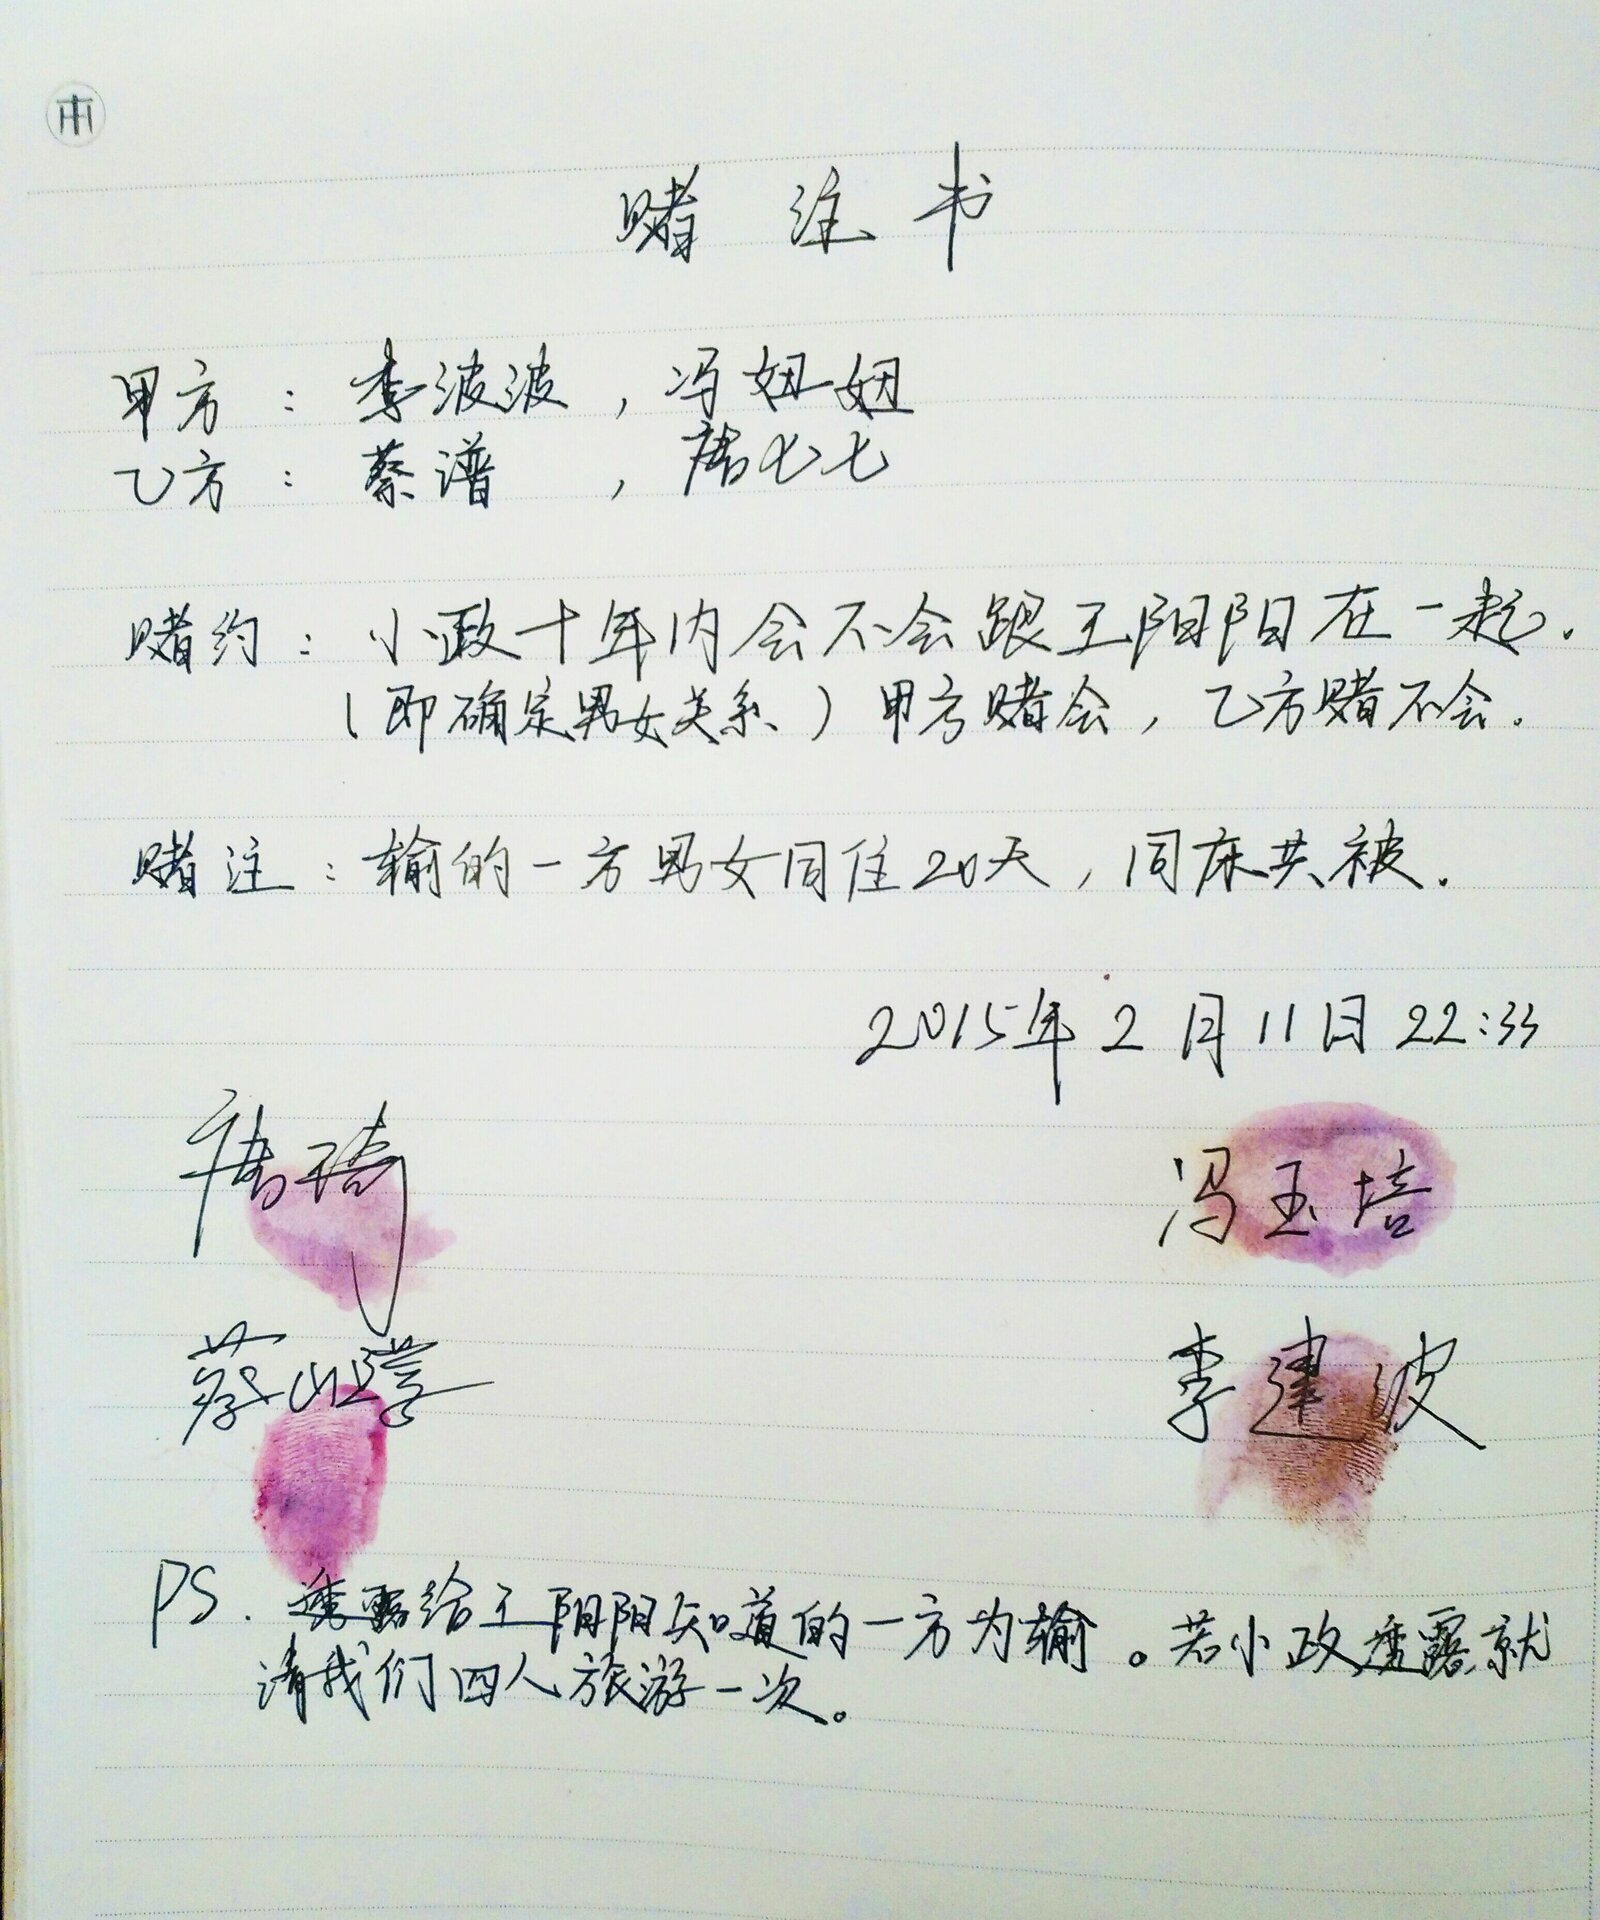 赌注书
甲方：李波波，冯妞妞
乙方：蔡谱，唐七七
赌约：小政十年内会不会跟王阳阳在一起.
（即确定男女关系）甲方赌会，乙方赌不会.
赌注：输的一方男女同住20天，同床共被.
2015年2月11日22:33
唐琦
冯玉培
李建波
PS. 透露给王阳阳知道的一方为输。若小政透露就
请我们四人旅游一次。